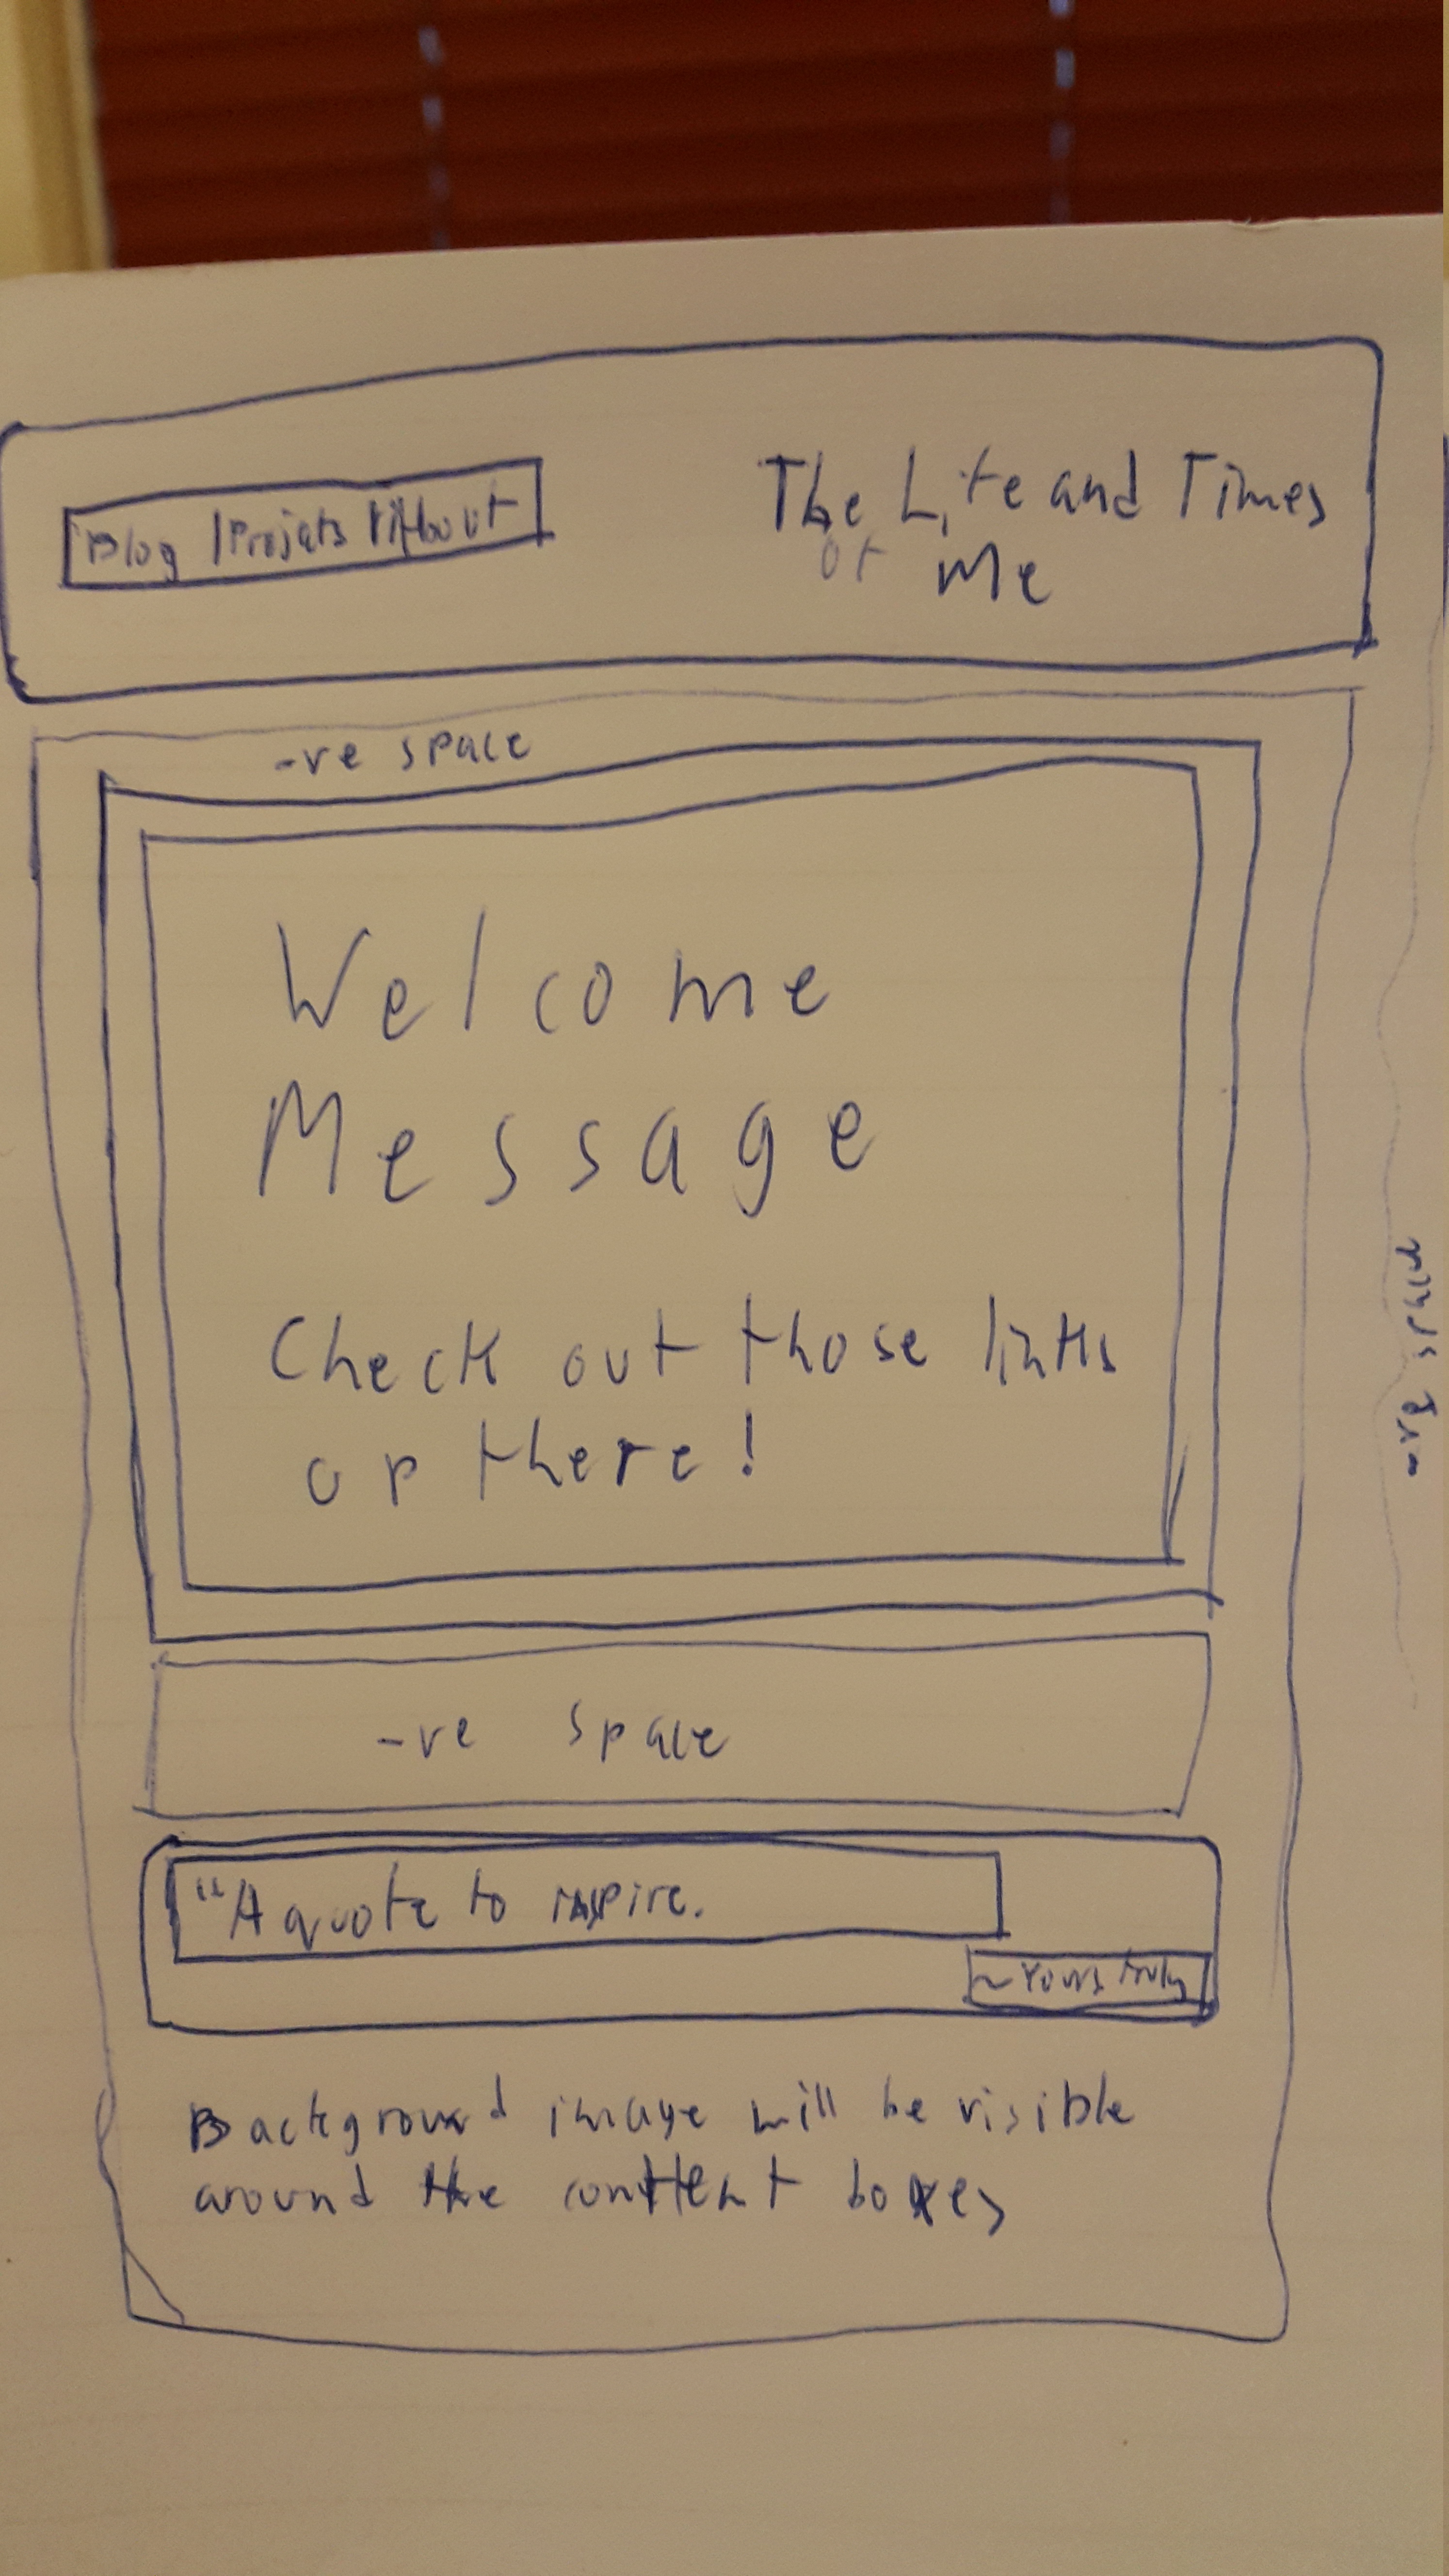 Blog | Projects | About
The Life and Times
of Me
-ve space
Welcome
Message
Check out those links
up there!
-ve space
-ve space
"A quote to inspire.
~Yours truly
Background image will be visible
around the content boxes